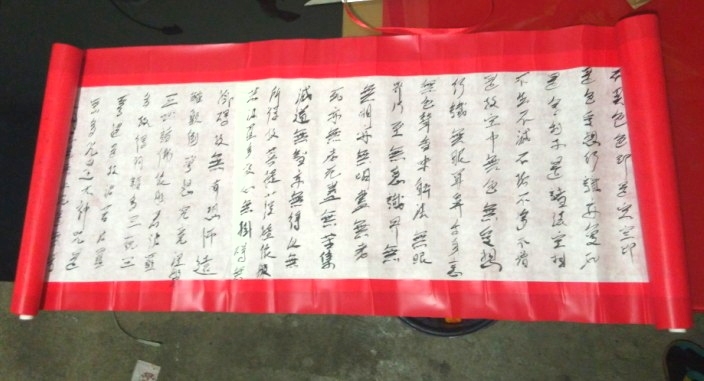 不異色色即是空空即
是色受想行識亦復如
是舍利子是諸法空相
不生不滅不垢不淨不增
是故空中無色無受想
行識無眼耳鼻舌身意
無色聲香味觸法無眼
界乃至無意識界無
無明亦無明盡無老
死亦無老死盡無苦集
滅道無智亦無得以無
所得故菩提薩埵依般
若波羅多故心無掛礙無
掛礙故無有恐怖遠
離顛倒夢想究竟涅槃
三世諸佛依般若波羅
多故得阿耨多羅三藐三
菩提故知般若波羅
蜜多是大神咒是